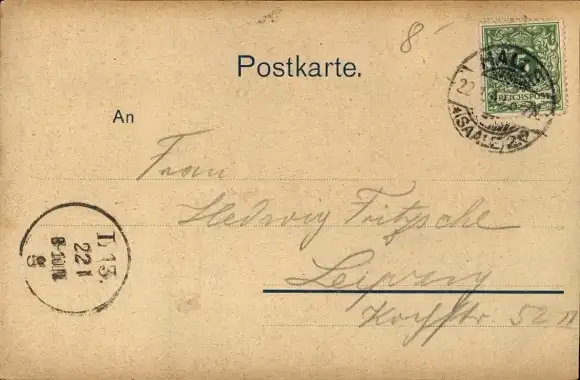 8
Postkarte.
REICHSPOST
HALLE
22
(SAALE) 2.
An
Frau
Hedwig Fritzsche
Leipzig
Kochstr 52 II
L 13.
22 1
8-10 N